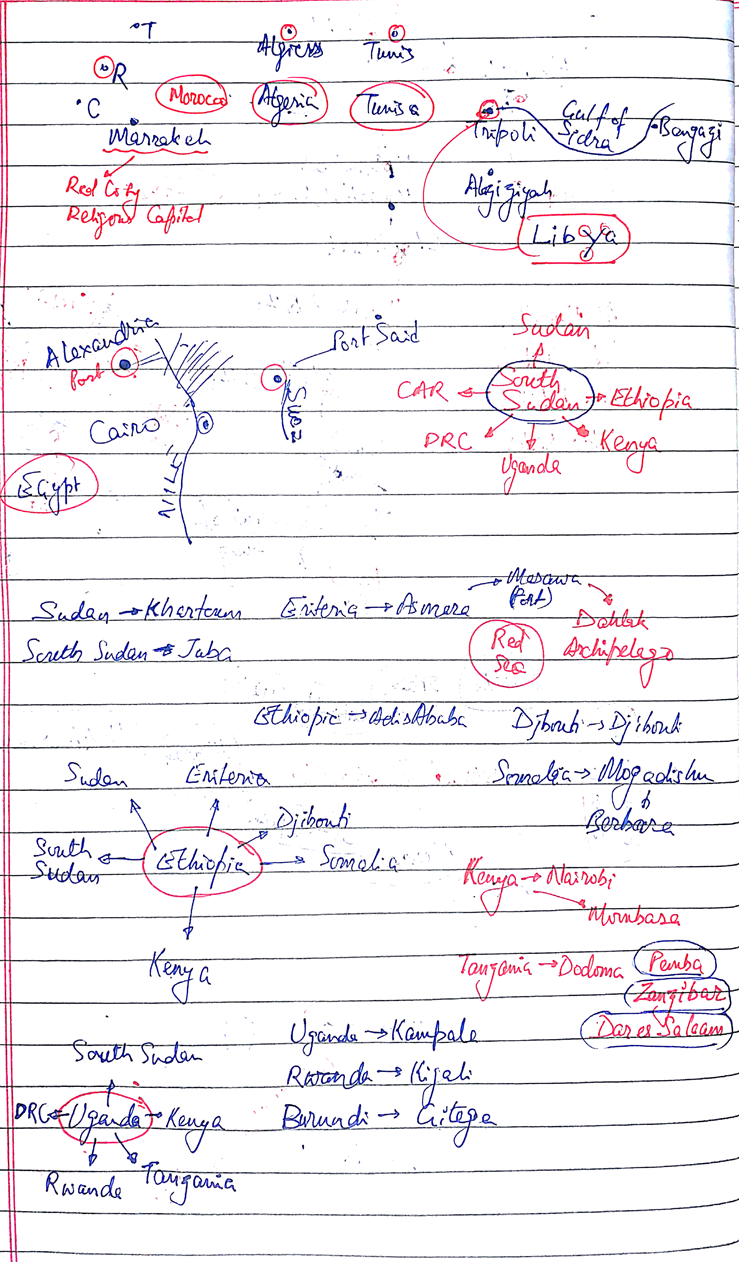 T
Algiess Tunis
R
Morocco Algeria Tunisa
C
Marrakeh
Tripoli Gulf of Sidra Bengagi
Red City
Religous Capital
Alagigiyah
Libya
Alexandria
Port
Port Said
Suez
Cairo
NILE
Egypt
Sudan
CAR South Sudan Ethiopia
DRC Uganda Kenya
Sudan → Khartoum Eriteria → Asmera → Masawa (Port)
Dahlak Archipelago
Red Sea
South Sudan → Juba
Ethiopia → Adis Ababa Djbouti → Djibouti
Sudan Eriteria
Somalia → Mogadishu
Djibouti
Berbara
South Sudan ← Ethiopia → Somalia
Kenya → Nairobi
Mombasa
Kenya
Tangania → Dodoma Pemba
Zangibar
Dar es-Salaam
Uganda → Kampala
South Sudan
Rwanda → Kigali
DRC ← Uganda → Kenya
Burundi → Gitega
Rwanda Tangania